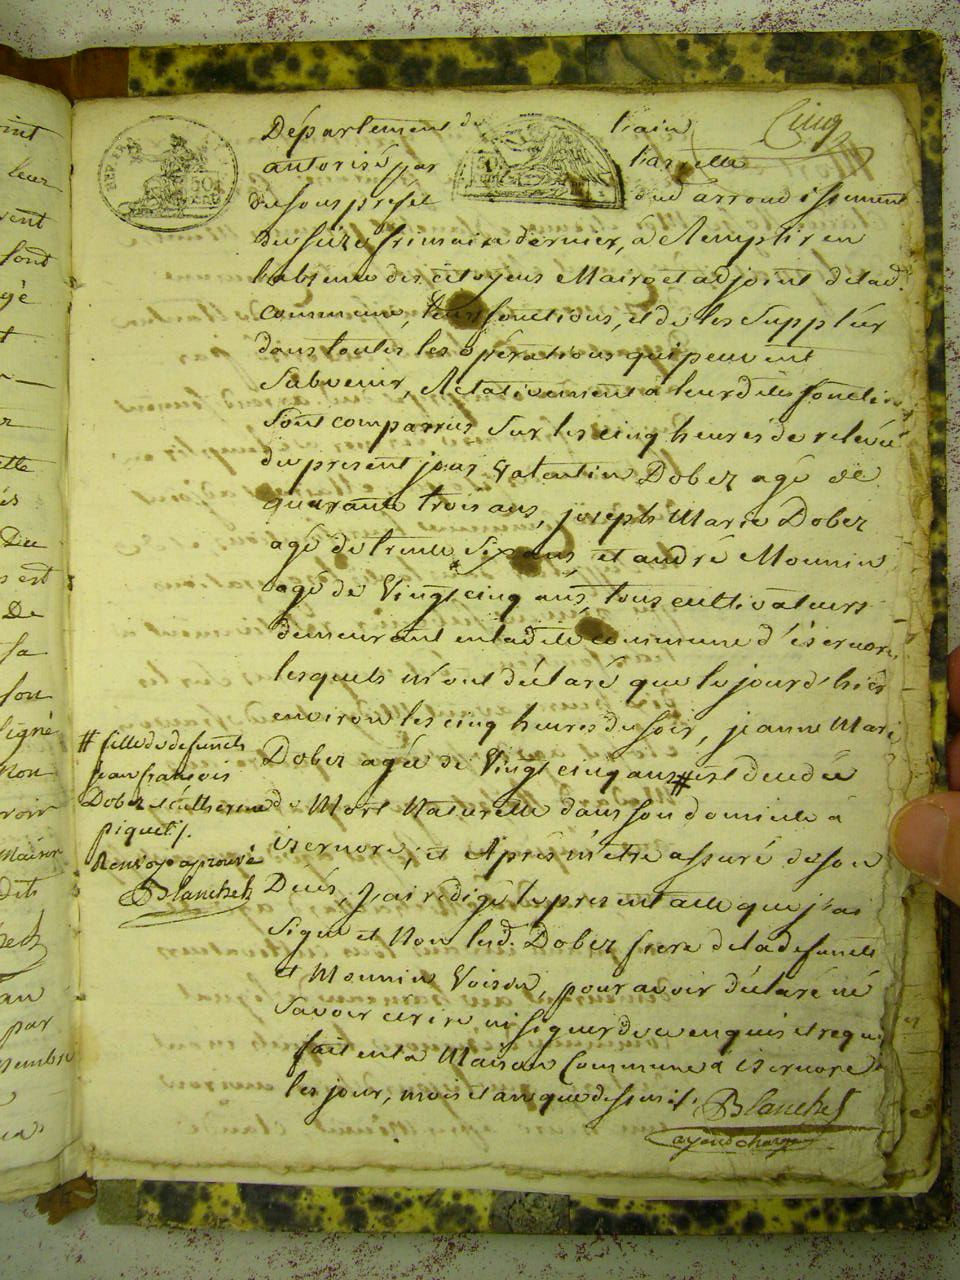 Cinq
Département de l'ain
autorisé par l'arrêté
du sous prefet dud. arrondissement
du seize frimaire dernier, à Remplir en
l'absence des citoyens Maire et adjoint de lad.
commune, leurs fonctions, et de les Suppléer
dans toutes les opérations qui peuvent
Subvenir, Relativement à leurdites fonctions
sont comparrus Sur les cinq heures de relevée
du present jour Valentin Dobez agé de
quarante trois ans, joseph Marie Dobez
agé de trente Six ans, et andré Mounin
agé de Vingt cinq ans, tous cultivateurs
demeurant en ladite commune d'isernore,
lesquels m'ont déclaré que le jour d'hier
environ les cinq heures du soir, jeanne Marie
Dobez agée de Vingt cinq ans # est decedée
de Mort Naturelle dans son domicile à
isernore, et Après m'être assuré de son
Decés, j'ai redigé le present acte que j'ai
Signé et Non lesd. Dobez frere de la defuncte
et Mounin Voisin, pour avoir déclaré ne
Savoir ecrire ni signer de ce enquis et requis
fait en la Maison Commune d'isernore
les jour, mois et an que dessus
Blanchet
ayant charge
# fille de defuncts
jean françois
Dobez et Catherine
piquet
Renvoye aprouvé
Blanchet